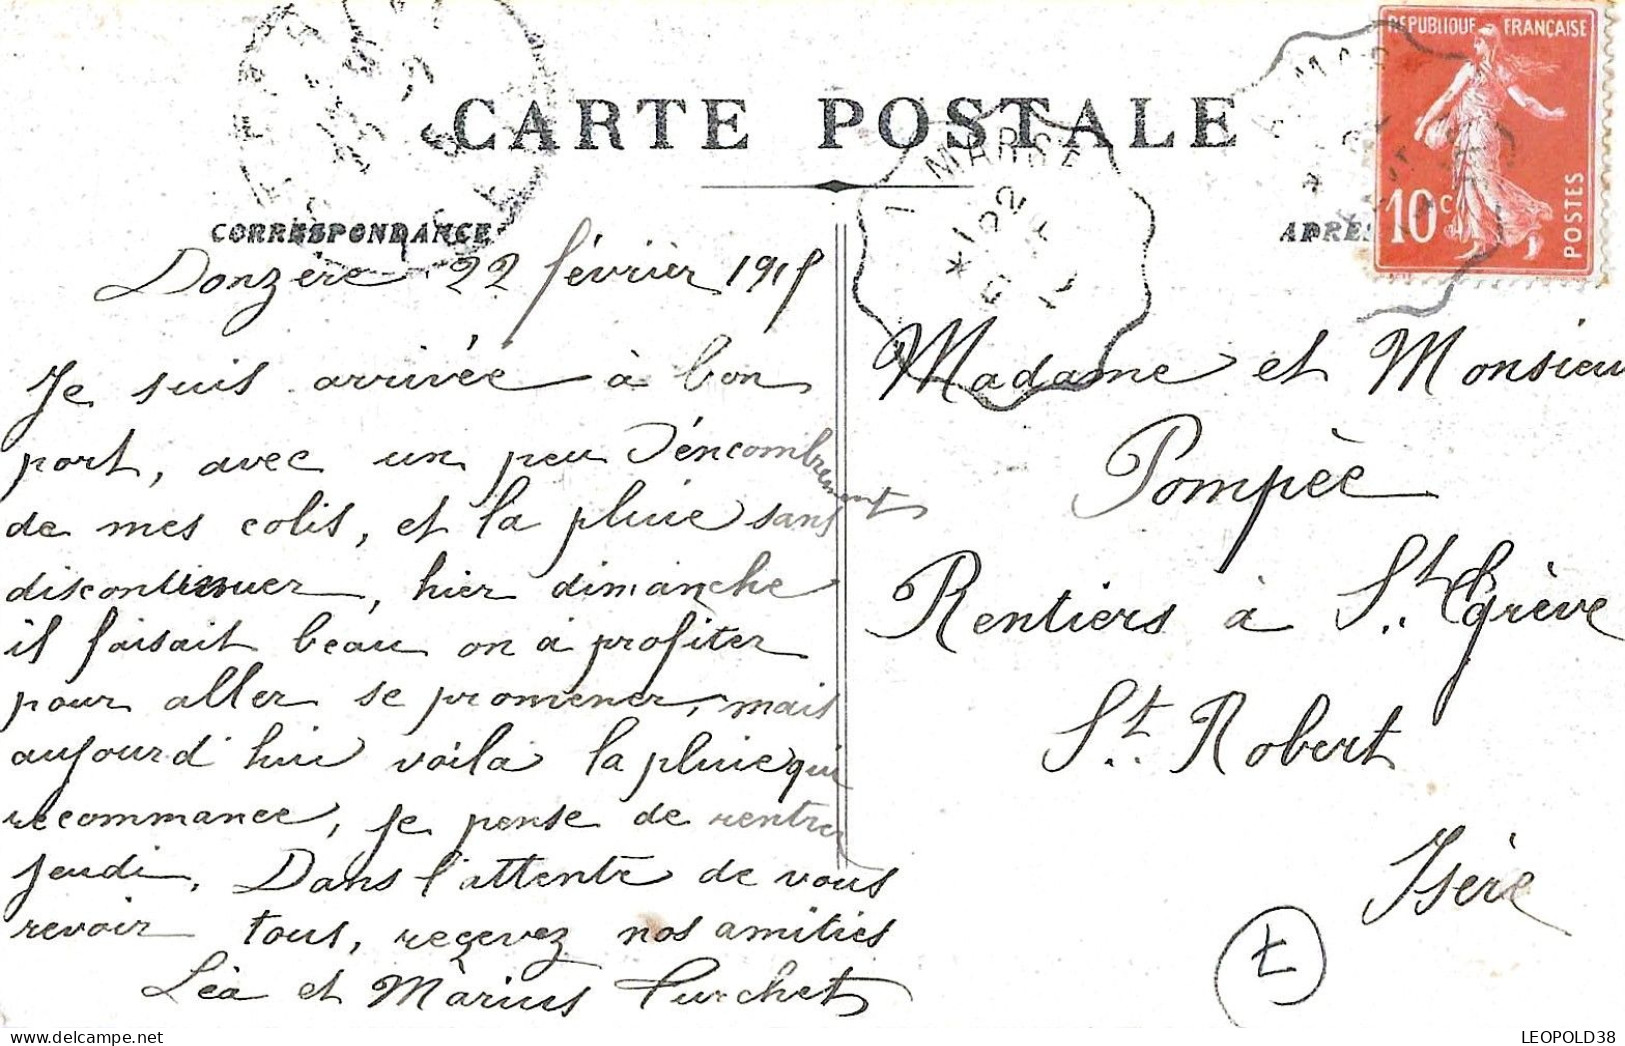 CARTE POSTALE
CORRESPONDANCE
REPUBLIQUE FRANÇAISE
10c
POSTES
Donzère 22 février 1915
Je suis arrivée à bon
port, avec un peu d'éncombrement
de mes colis, et la pluie sans
discontinuer, hier dimanche
il faisait beau on a profiter
pour aller se promener, mais
aujourd'hui voila la pluie qui
recommance, je pense de rentrer
jeudi. Dans l'attente de vous
revoir tous, reçevez nos amitiés
Léa et Màrius
Madame et Monsieu
Pompèe
Rentiers à St. Egrève
St. Robert
Isère
LEOPOLD38